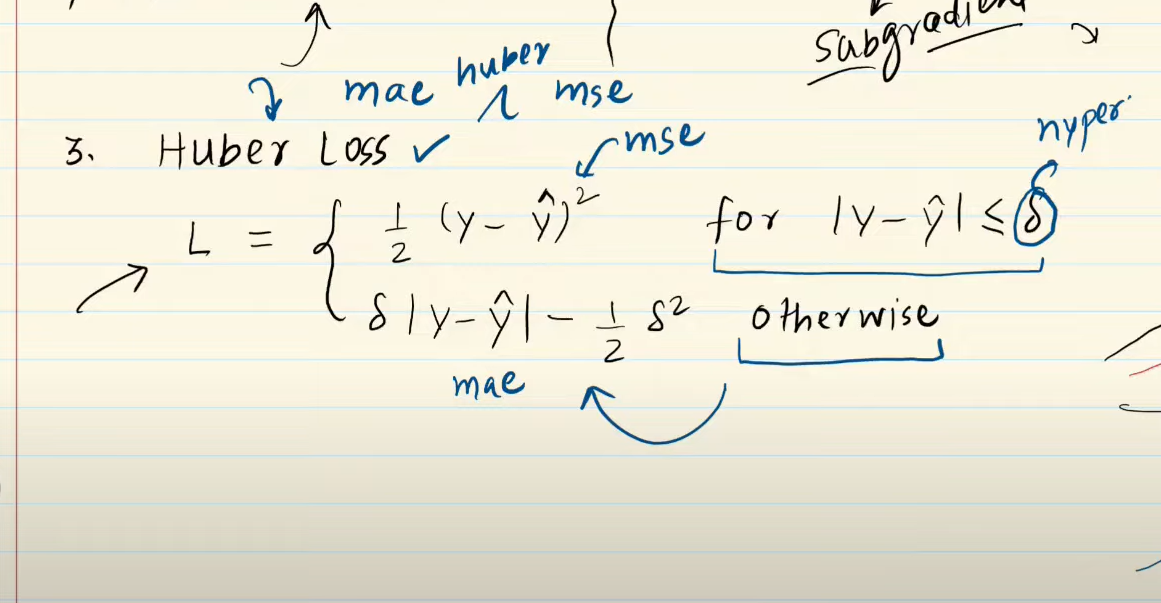 Subgradient
mae huber mse
3. Huber Loss ✓ mse
hyper
L = { 1/2 (y - ŷ)² for |y - ŷ| ≤ δ
δ |y - ŷ| - 1/2 δ² otherwise
mae